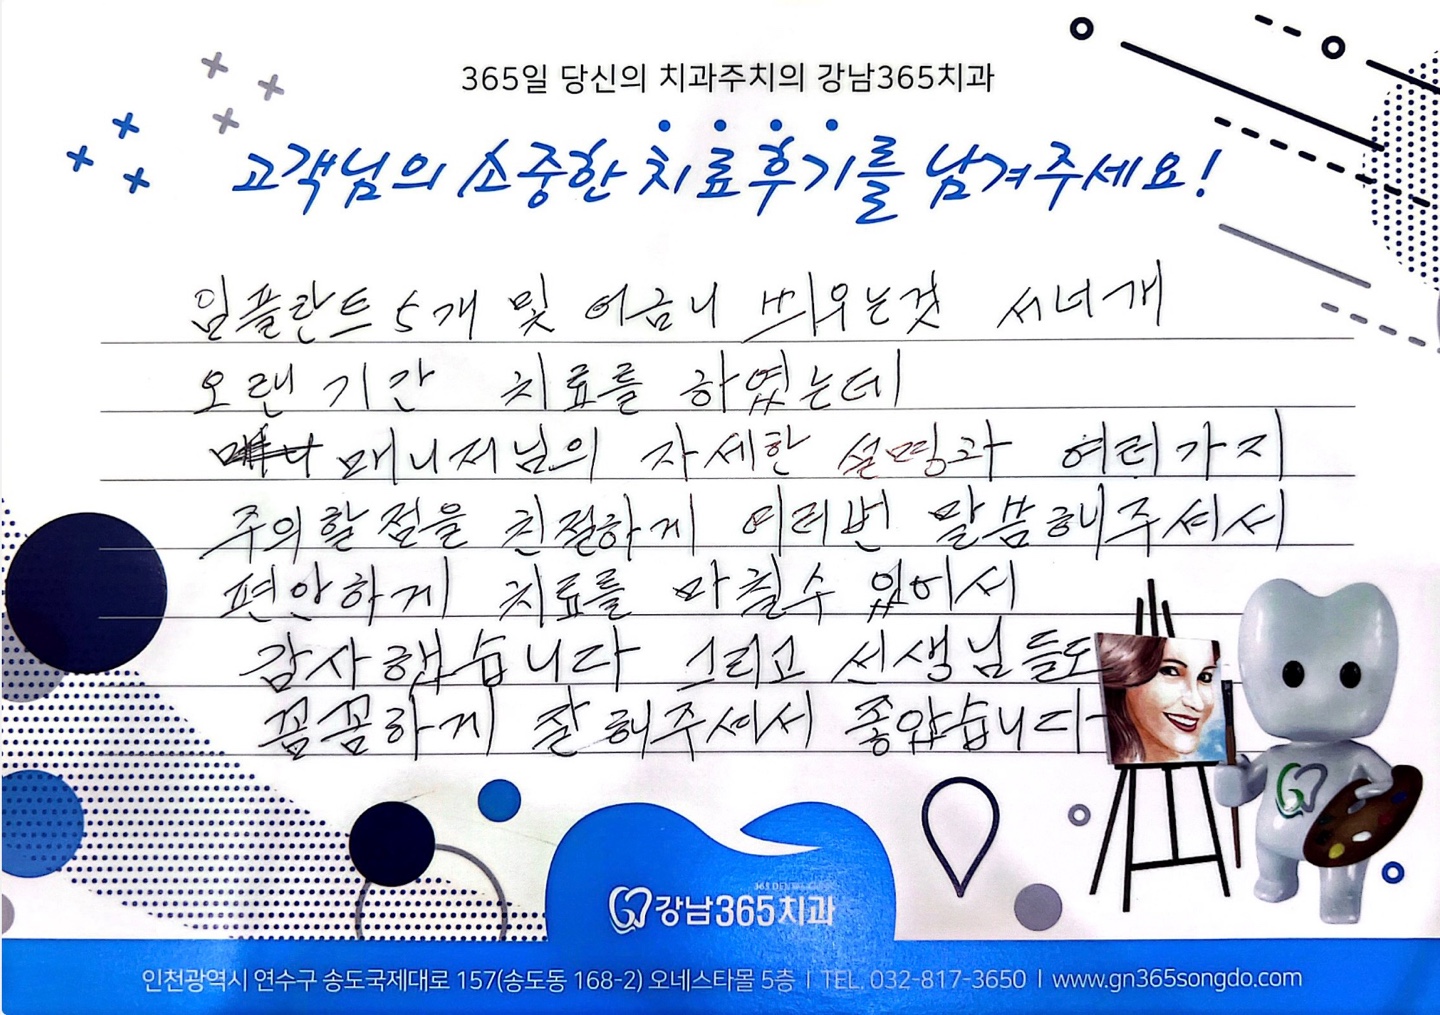 365일 당신의 치과주치의 강남365치과
고객님의 소중한 치료후기를 남겨주세요!
임플란트 5개 및 어금니 씌우는것 서너개
오랜 기간 치료를 하였는데
매니저님의 자세한 설명과 여러가지
주의할점을 친절하게 여러번 말씀해주셔서
편안하게 치료를 마칠수 있어서
감사했습니다 그리고 선생님들도
꼼꼼하게 잘해주셔서 좋았습니다
365 DENTAL CLINIC
강남365치과
인천광역시 연수구 송도국제대로 157(송도동 168-2) 오네스타몰 5층 | TEL. 032-817-3650 | www.gn365songdo.com